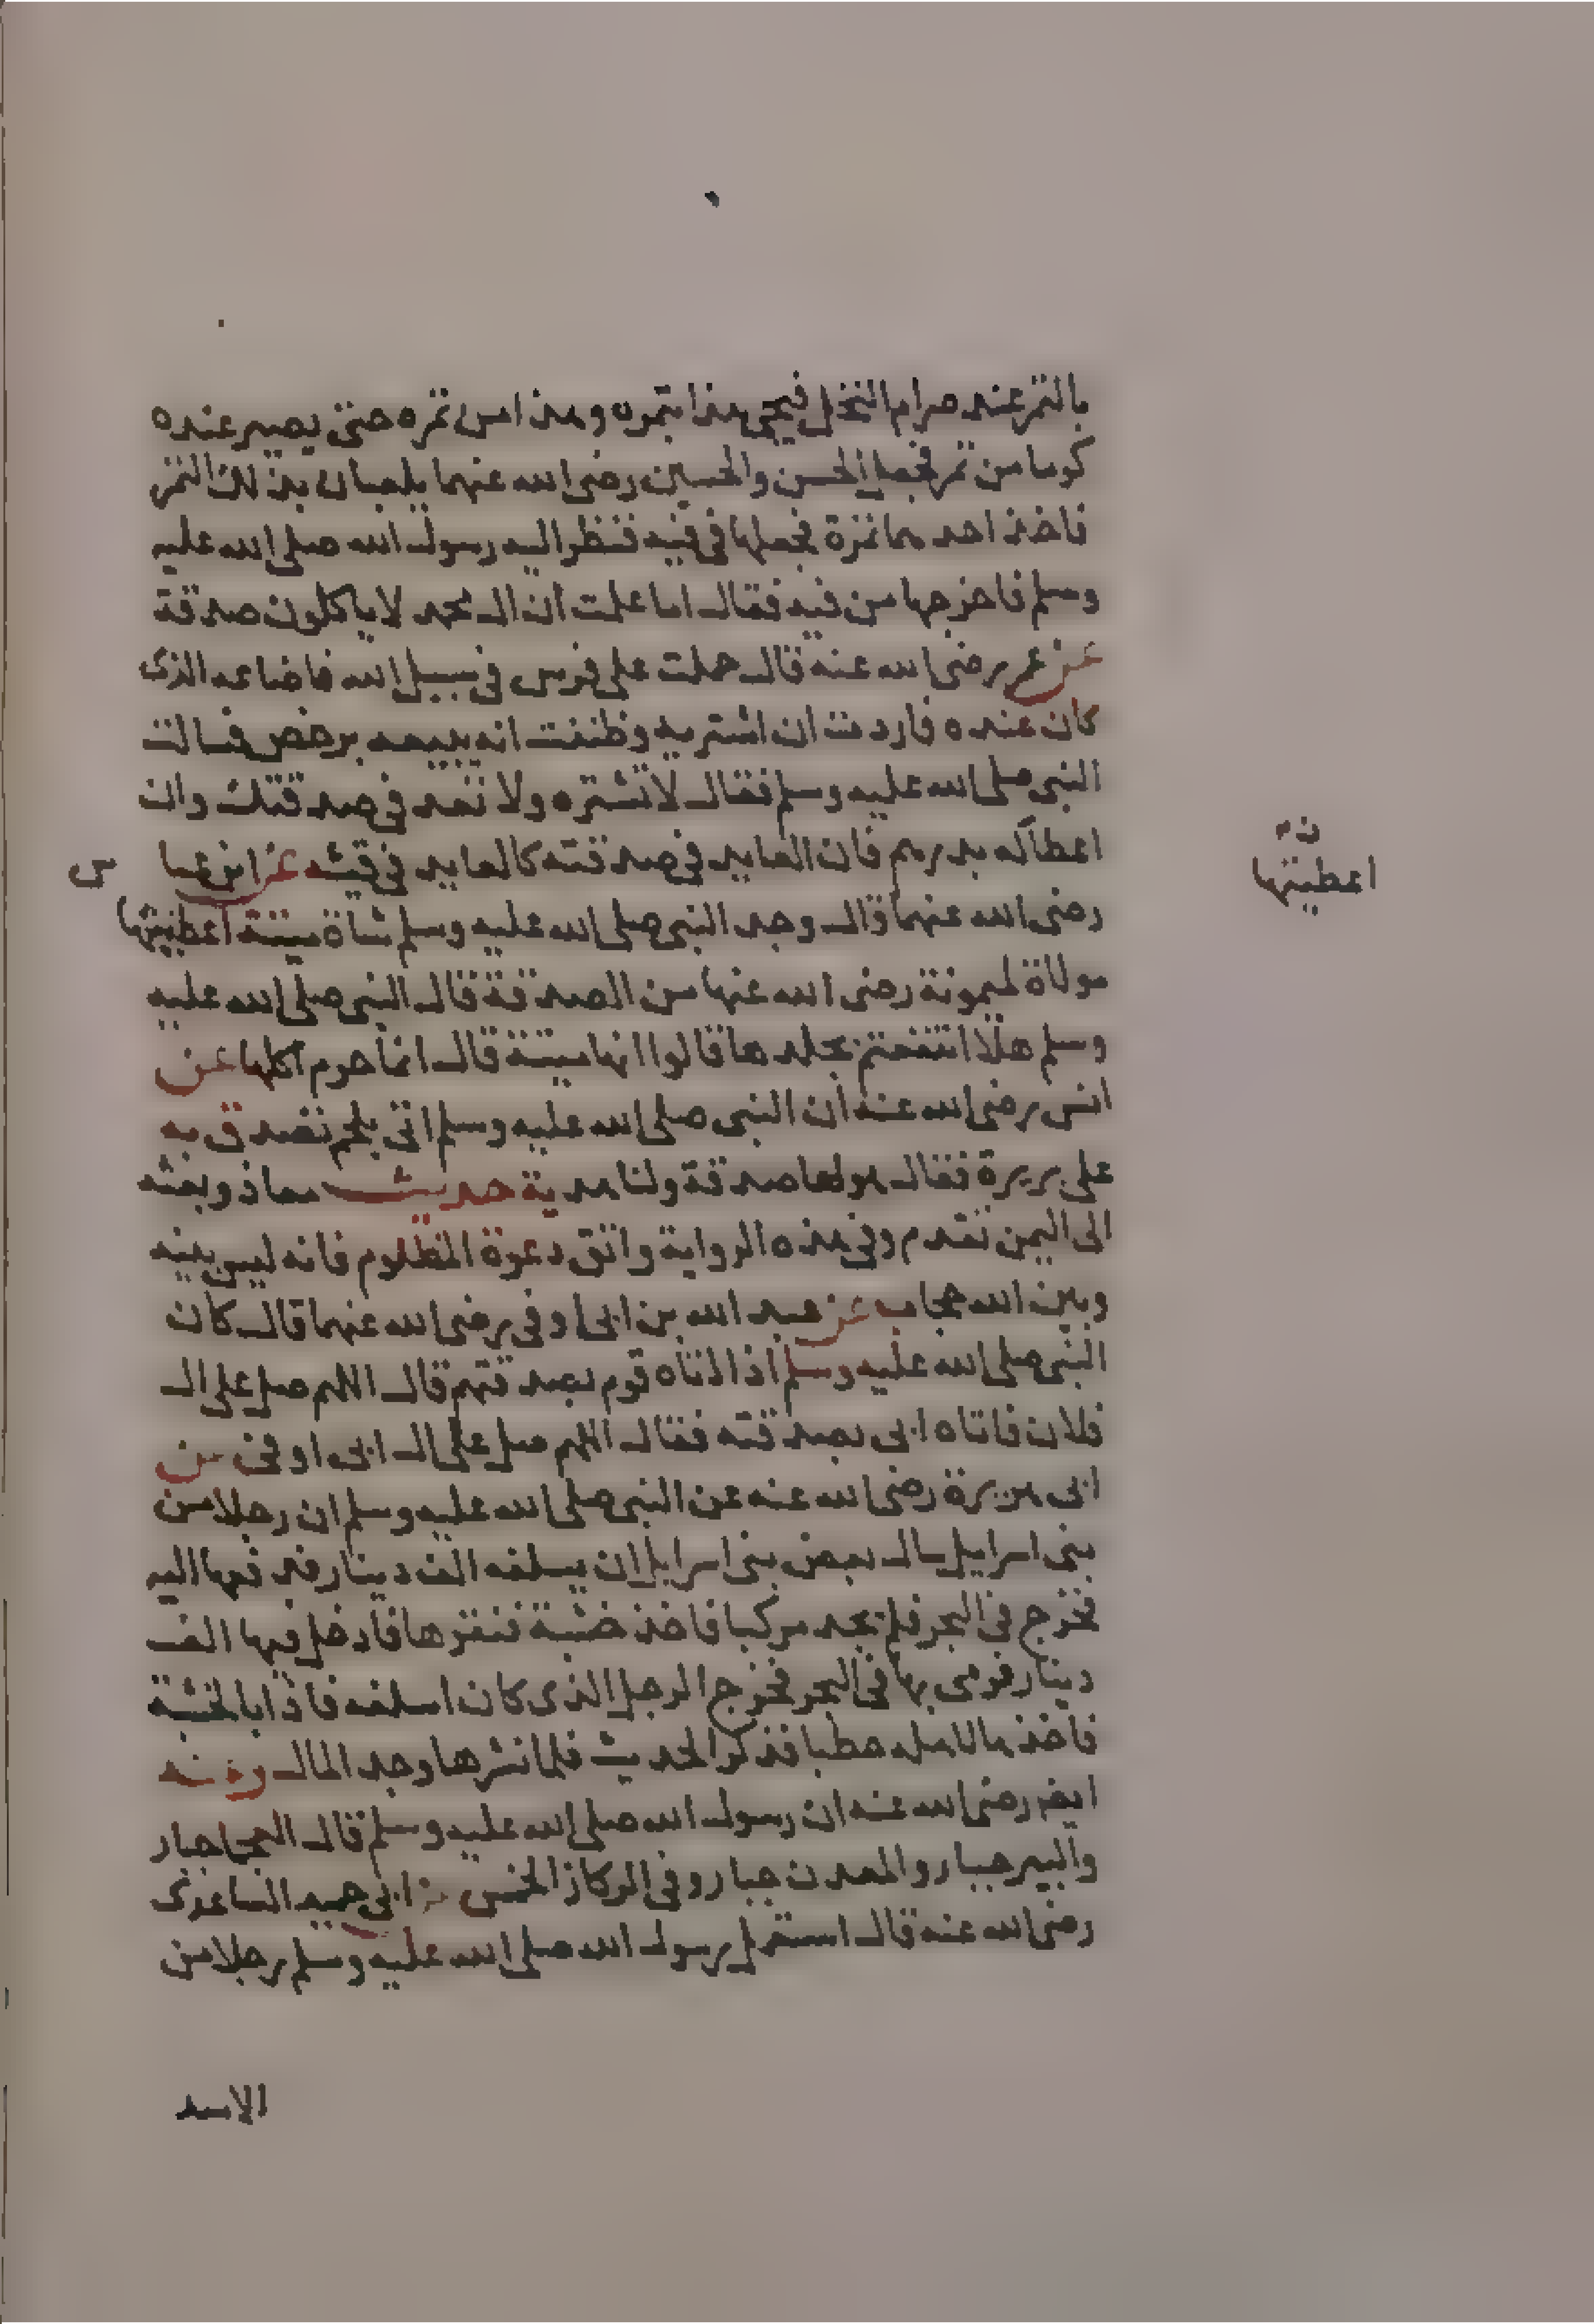 بالتمر عند صرام النخل فيجي هذا بتمره وهذا من تمره حتى يصير عنده
كوما من تمر فجعل الحسن والحسين رضي الله عنهما يلعبان بذلك التمر
فاخذ احدهما تمرة فجعلها في فيه فنظر اليه رسول الله صلى الله عليه
وسلم فاخرجها من فيه فقال اما علمت ان ال محمد لا ياكلون صدقة
عن عمر رضي الله عنه قال حملت على فرس في سبيل الله فاضاعه الذي
كان عنده فاردت ان اشتريه وظننت انه يبيعه برخص فسالت
النبي صلى الله عليه وسلم فقال لا تشتره ولا تعد في صدقتك وان
اعطاكه بدرهم فان العايد في صدقته كالعايد في قيئه عن ابن عباس
رضي الله عنهما قال وجد النبي صلى الله عليه وسلم شاة ميتة اعطيتها
مولاة لميمونة رضي الله عنها من الصدقة قال النبي صلى الله عليه
وسلم هلا انتفعتم بجلدها قالوا انها ميتة قال انما حرم اكلها عن
انس رضي الله عنه ان النبي صلى الله عليه وسلم اتي بلحم تصدق به
على بريرة فقال هو لها صدقة ولنا هدية حديث معاذ وبعثه
الى اليمن تقدم وفي هذه الرواية واتق دعوة المظلوم فانه ليس بينه
وبين الله حجاب عن عبد الله بن ابي اوفى رضي الله عنهما قال كان
النبي صلى الله عليه وسلم اذا اتاه قوم بصدقتهم قال اللهم صل على ال
فلان فاتاه ابي بصدقته فقال اللهم صل على ال ابي اوفى عن
ابي هريرة رضي الله عنه عن النبي صلى الله عليه وسلم ان رجلا من
بني اسرايل سال بعض بني اسرايل ان يسلفه الف دينار فدفعها اليه
فخرج في البحر فلم يجد مركبا فاخذ خشبة فنقرها فادخل فيها الف
دينار فرمى بها في البحر فخرج الرجل الذي كان اسلفه فاذا بالخشبة
فاخذها لاهله حطبا فذكر الحديث فلما نشرها وجد المال وعنه
ايضا رضي الله عنه ان رسول الله صلى الله عليه وسلم قال العجما جبار
والبير جبار والمعدن جبار وفي الركاز الخمس عن ابي حميد الساعدي
رضي الله عنه قال استعمل رسول الله صلى الله عليه وسلم رجلا من
الاسد
اعطيتها